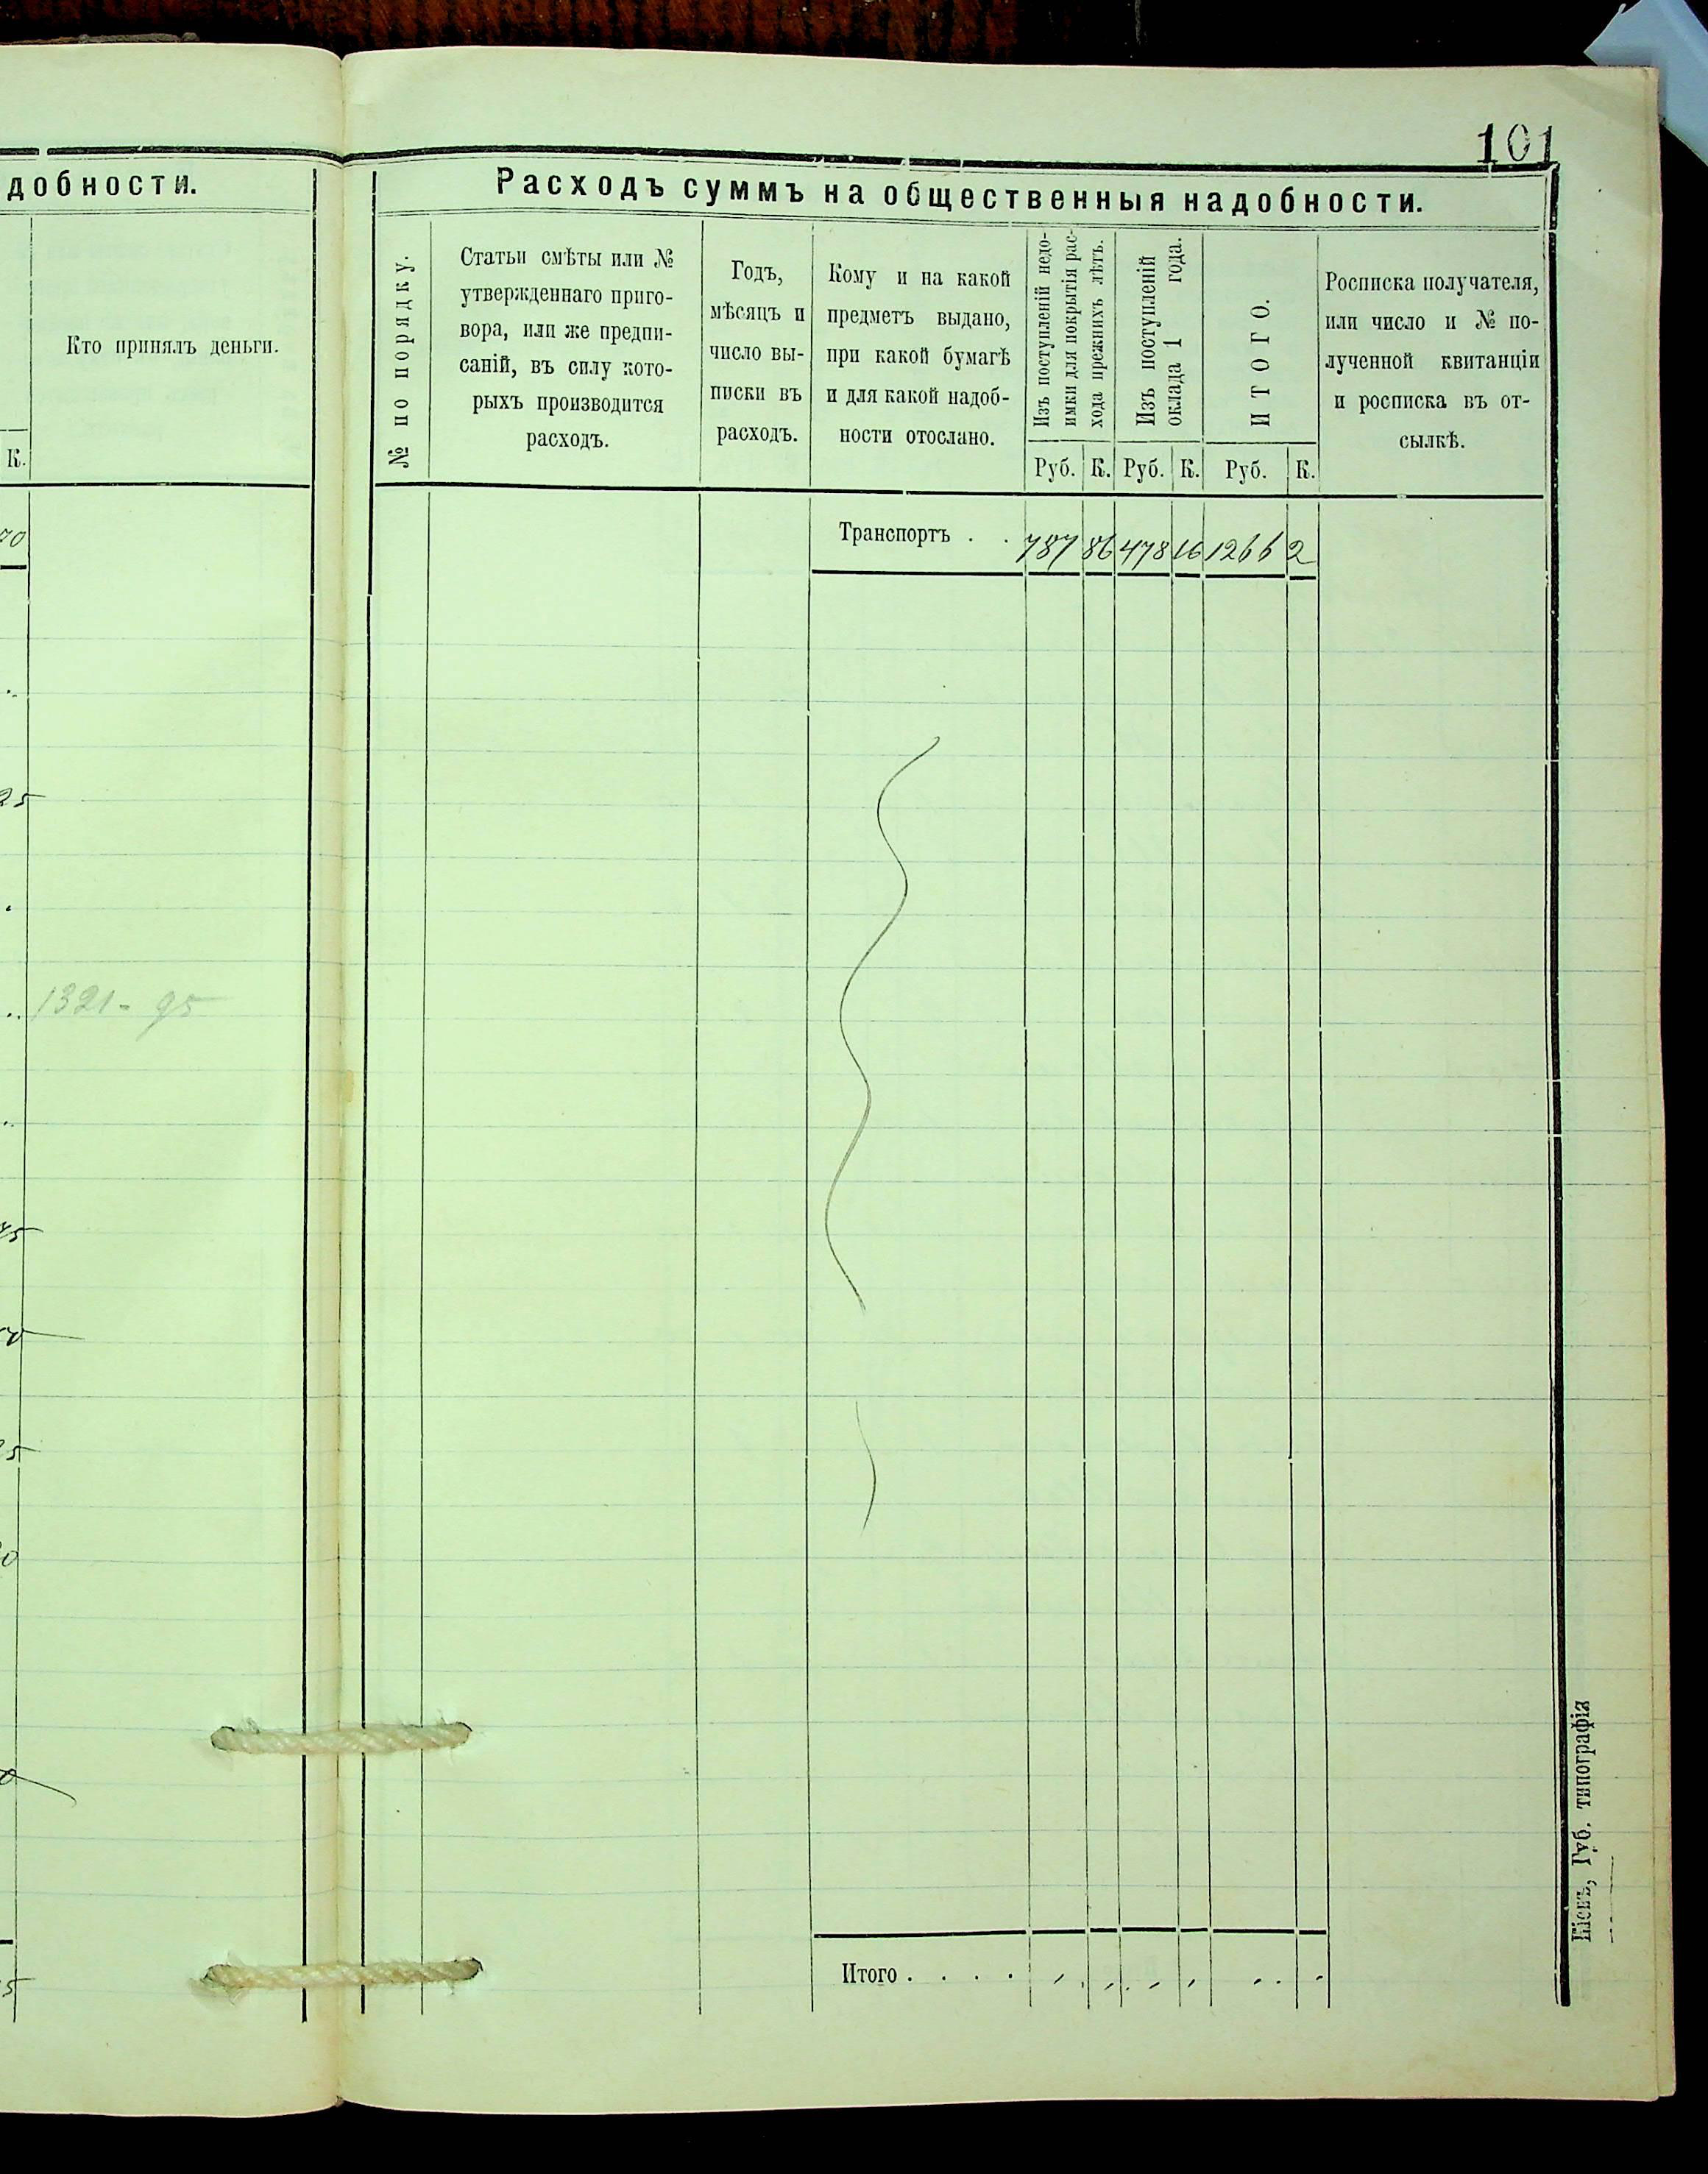 101
добности.
К.
Кто принялъ деньги.
70
25
1321-95
75
Расходъ суммъ на общественныя надобности.
№ по порядку.
Статьи смѣты или №
утвержденнаго приго-
вора, или же предпи-
саній, въ силу кото-
рыхъ производится
расходъ.
Годъ,
мѣсяцъ и
число вы-
писки въ
расходъ.
Кому и на какой
предметъ выдано,
при какой бумагѣ
и для какой надоб-
ности отослано.
Изъ поступленій недо-
имки для покрытія рас-
хода прежнихъ лѣтъ.
Изъ поступленій
оклада 1 года.
ИТОГО.
Росписка получателя,
или число и № по-
лученной квитанціи
и росписка въ от-
сылкѣ.
Руб. К. Руб. К. Руб. К.
Транспортъ . . 787 86 478 16 1266 2
Итого . . . .
Губ. типографія